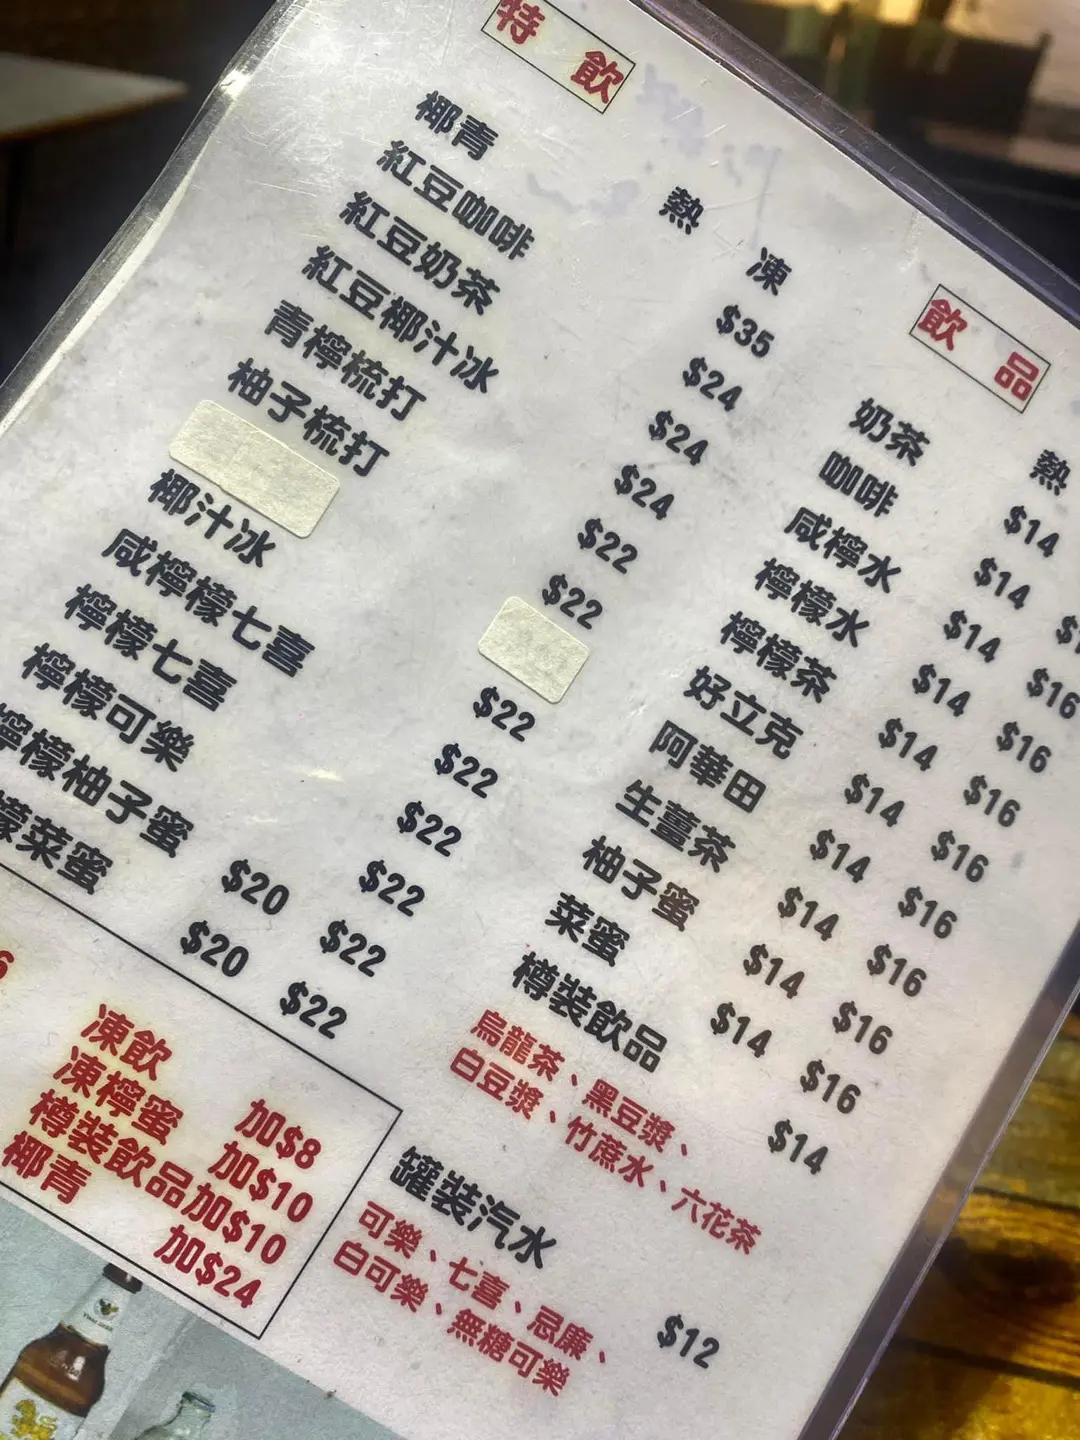 特飲
熱 凍
椰青 $35
紅豆咖啡 $24
紅豆奶茶 $24
紅豆椰汁冰 $24
青檸梳打 $22
柚子梳打 $22
椰汁冰 $22
咸檸檬七喜 $22
檸檬七喜 $22
檸檬可樂 $22
檸檬柚子蜜 $20 $22
檬菜蜜 $20 $22
6
凍飲 加$8
凍檸蜜 加$10
樽裝飲品加$10
椰青 加$24
飲品
熱
奶茶 $14
咖啡 $14
咸檸水 $14 $16
檸檬水 $14 $16
檸檬茶 $14 $16
好立克 $14 $16
阿華田 $14 $16
生薑茶 $14 $16
柚子蜜 $14 $16
菜蜜 $14 $16
樽裝飲品 $14
烏龍茶、黑豆漿、
白豆漿、竹蔗水、六花茶
罐裝汽水 $12
可樂、七喜、忌廉、
白可樂、無糖可樂